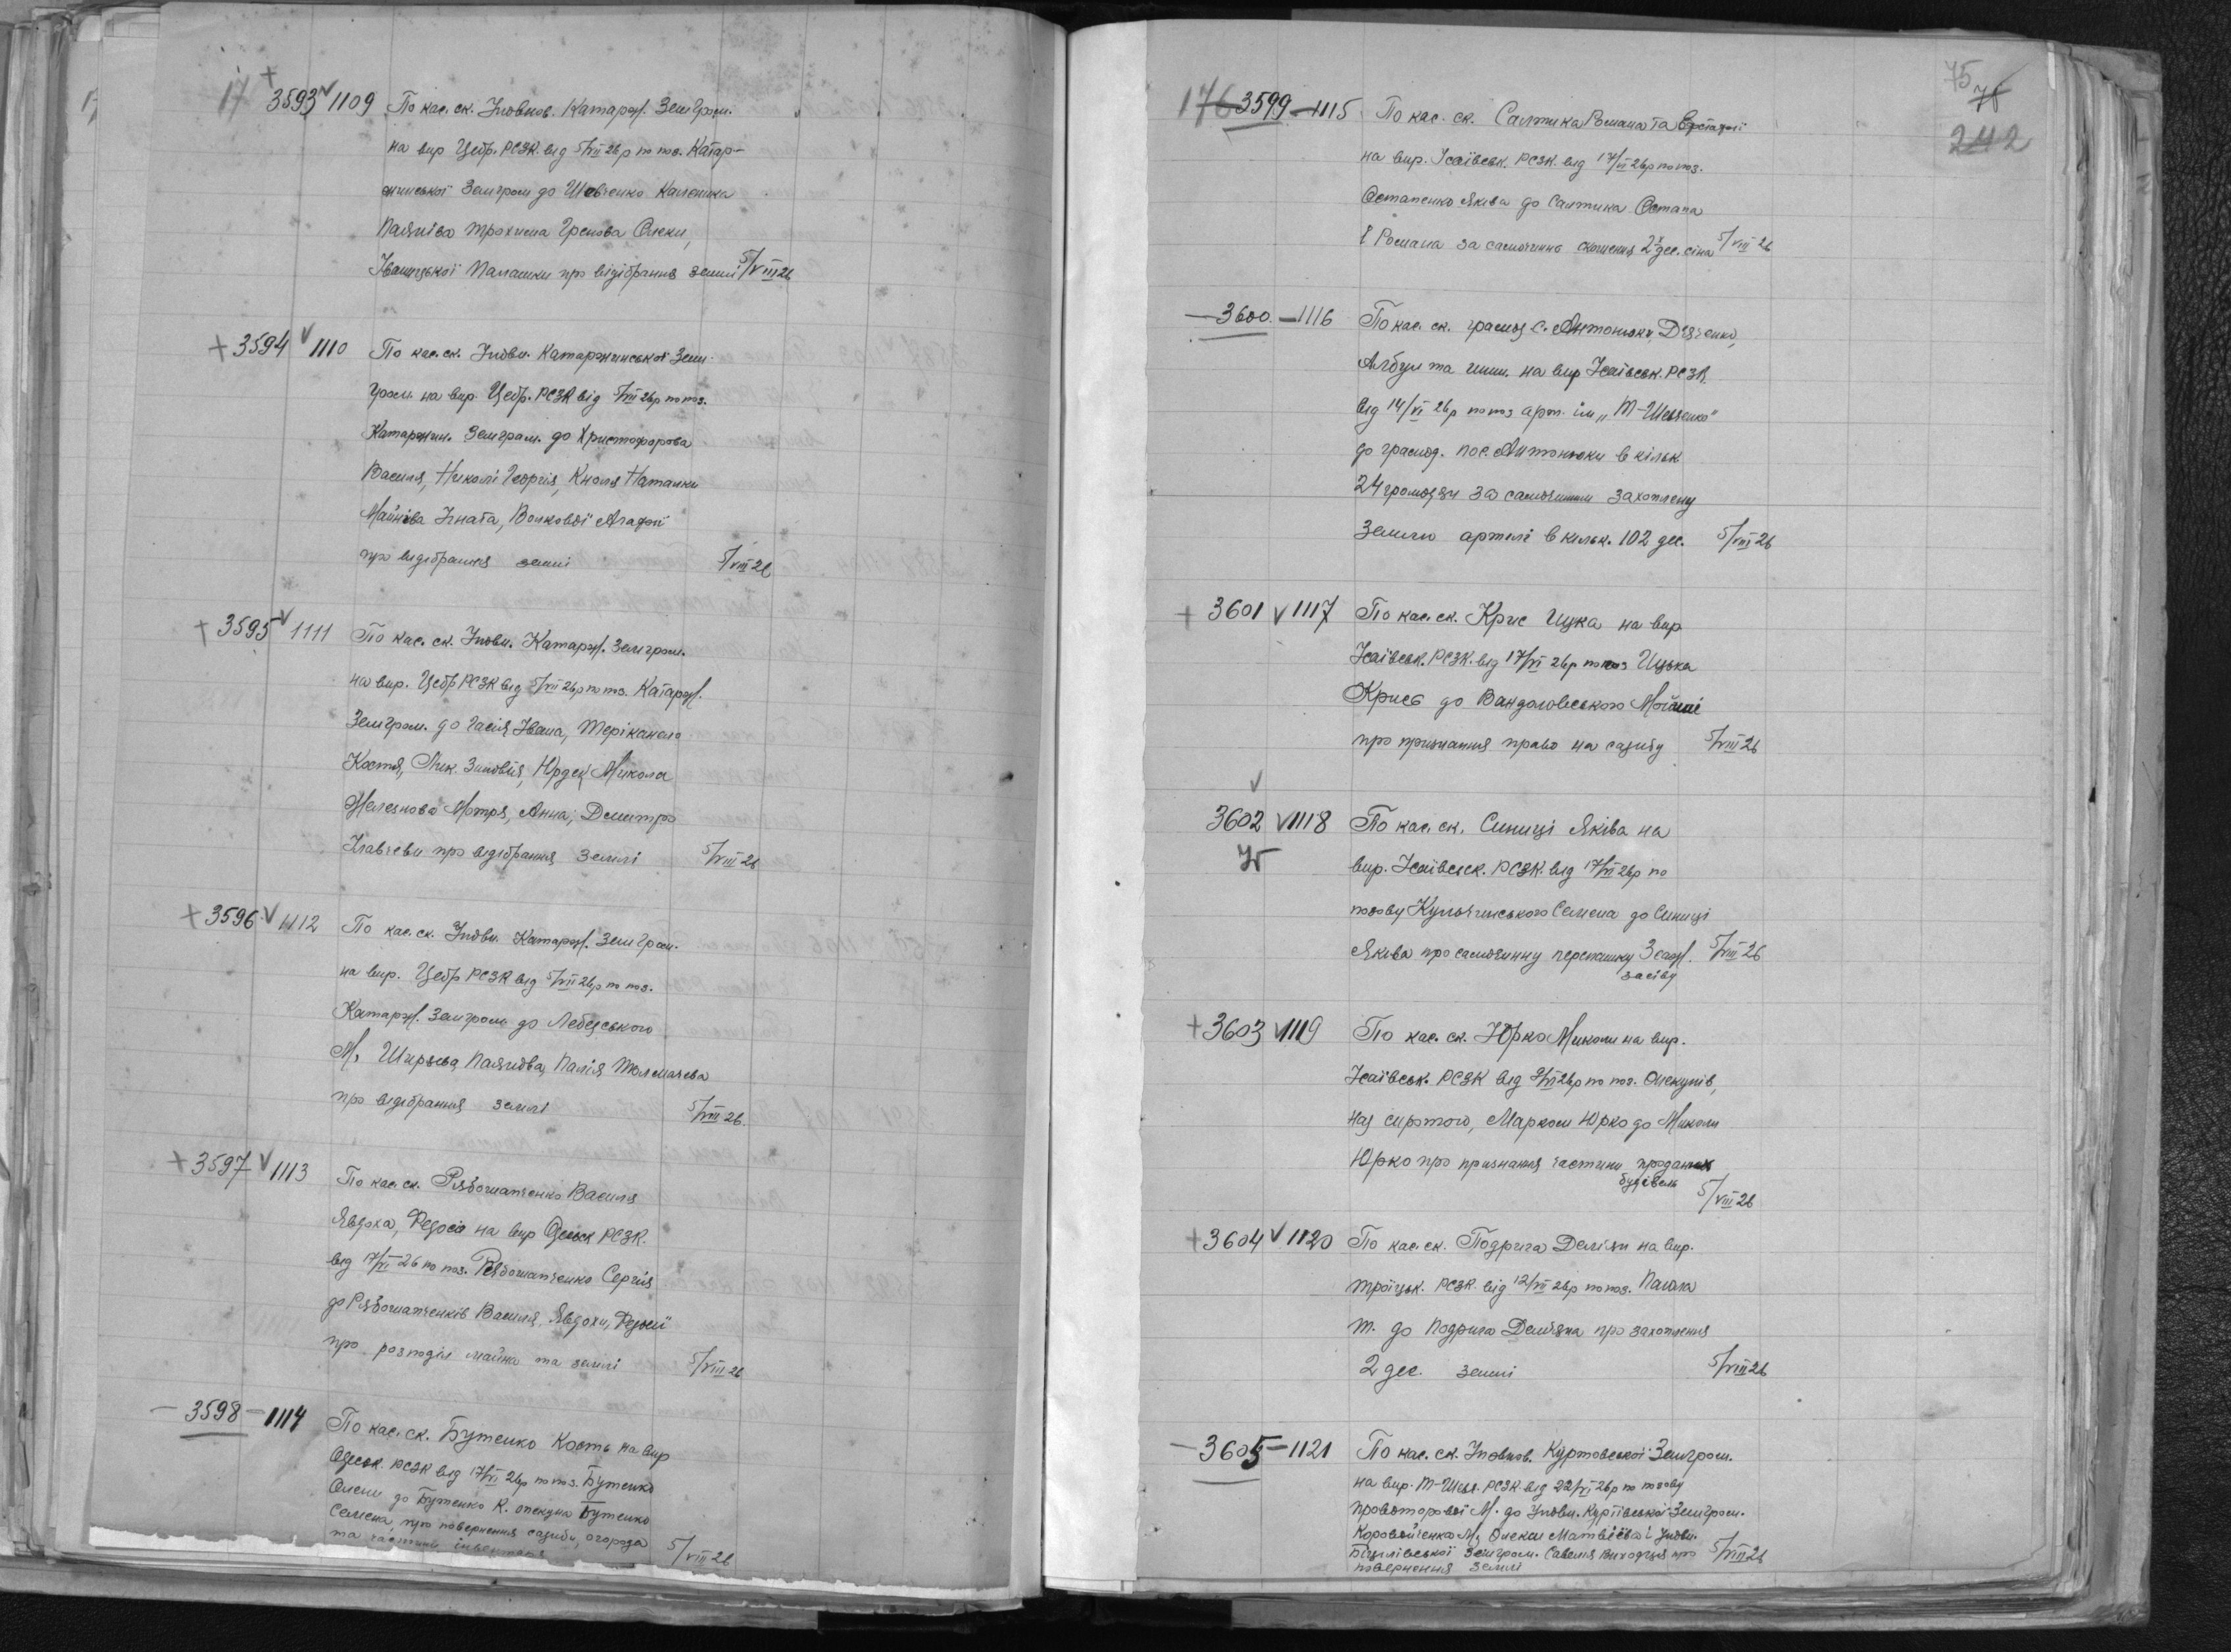 17
+ 3593 v 1109 По кас. ск. Уповнов. Катарж. Земгром.
на вир Цебр. РСЗК. від 5/VII 26р по поз. Катар-
жинської Земгром до Шевченко Калістика
Паляніва Трохима Грекова Олекси,
Іваницької Палашки про відібрання землі 5/VIII 26
+ 3594 v 1110 По кас. ск. Уповн. Катаржинської Зем
гром. на вир. Цебр. РСЗК від 5/VII 26р по поз.
Катаржин. Земгром. до Христофорова
Василя, Николі Георгія, Наталки
Ігната, Волкової Агафії
про відібрання землі 5/VIII 26
+ 3595 v 1111 По кас. ск. Уповн. Катарж. Земгром.
на вир. Цебр РСЗК від 5/VII 26р по поз. Катарж.
Земгром. до Гасія Івана,
Костя, Зиновія, Микола
Железнова Мотря, Анна, Демитро
про відібрання землі 5/VIII 26
+ 3596 v 1112 По кас. ск. Уповн. Катарж. Земгром.
на вир. Цебр РСЗК від 5/VII 26р по поз.
Катарж. Земгром до Лебедського
М, Палія Толмачева
про відібрання землі 5/VIII 26.
+ 3597 v 1113 По кас. ск. Рябошапченко Василя
Явдоха, Федосія на вир Одеськ РСЗК.
від 17/VI 26 по поз. Рябошапченко Сергія
до Рябошапченків Василя, Явдохи, Федосії
про розподіл майна та землі 5/VIII 26
— 3598 — 1114 По кас. ск. Бутенко Кость на вир
Одеськ. РСЗК від 17/VI 26р по поз. Бутенко
Олени до Бутенко К. опекуна Бутенко
Семена про повернення садиби, огорода
та частини інвентаря 5/VIII 26
75
76
242
176 3599 — 1115 По кас. ск. Салтика Романа та
на вир. Ісаївськ. РСЗК. від 17/VI 26р по поз.
Остапенко Якова до Салтика Остапа
і Романа за самочинно скошення 2х дес. сіна 5/VIII 26
— 3600. — 1116 По кас. ск. громад с. Антонюки, Дяченко,
Албул та инш. на вир Ісаївськ. РСЗК.
від 14/VI 26р по поз арт. ім „Т-Шевченко"
до громад. пос. Антонюки в кільк
24 громадян за самочинно захоплену
землю артілі в кільк. 102 дес. 5/VIII 26
+ 3601 v 1117 По кас. ск. Крис Ицка на вир
Ісаївськ. РСЗК. від 17/VI 26р по поз Ицька
Крись до Вандоловського Мойші
про признання право на садибу 5/VIII 26
v
3602 v 1118 По кас. ск. Синиці Яківа на
вир. Ісаївськ. РСЗК. від 17/VI 26р по
позову Кульчинського Семена до Синиці
Яківа про самочинну перепашку 3 саж. 5/VIII 26
засіву
+ 3603 v 1119 По кас. ск. Юрко Миколи на вир.
Ісаївськ. РСЗК від 9/VI 26р по поз. Опекунів,
над сиротою, Марком Юрко до Миколи
Юрко про признання частини проданих
будівель 5/VIII 26
+ 3604 v 1120 По кас. ск. Подрига Деміян на вир.
Троїцьк. РСЗК від 12/VI 26р по поз. Палала
Т. до Подрига Деміяна про захоплення
2 дес. землі 5/VIII 26
— 3605 — 1121 По кас. ск. Уповнов. Куртовської Земгром.
на вир. Т-Шевч. РСЗК від 22/VI 26р по позову
Провоторової М. до Уповн. Куртівської Земгром.
Коровайченка М, Олекси Матвієва і Уповн.
Біцилівської Земгром. Савелія Виходця про 5/VIII 26
повернення землі